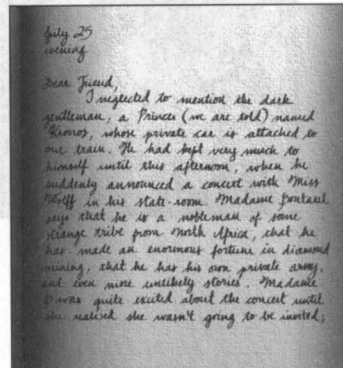 July 25
evening
Dear Friend,
I neglected to mention the dark
gentleman, a Prince (we are told) named
Kronos, whose private car is attached to
our train. He had kept very much to
himself until this afternoon, when he
suddenly announced a concert with Miss
Wolff in his state-room. Madame
says that he is a nobleman of some
strange tribe from North Africa, that he
has made an enormous fortune in diamond
mining, that he has his own private army,
and even more unlikely stories. Madame
B was quite excited about the concert until
she realised she wasn't going to be invited;